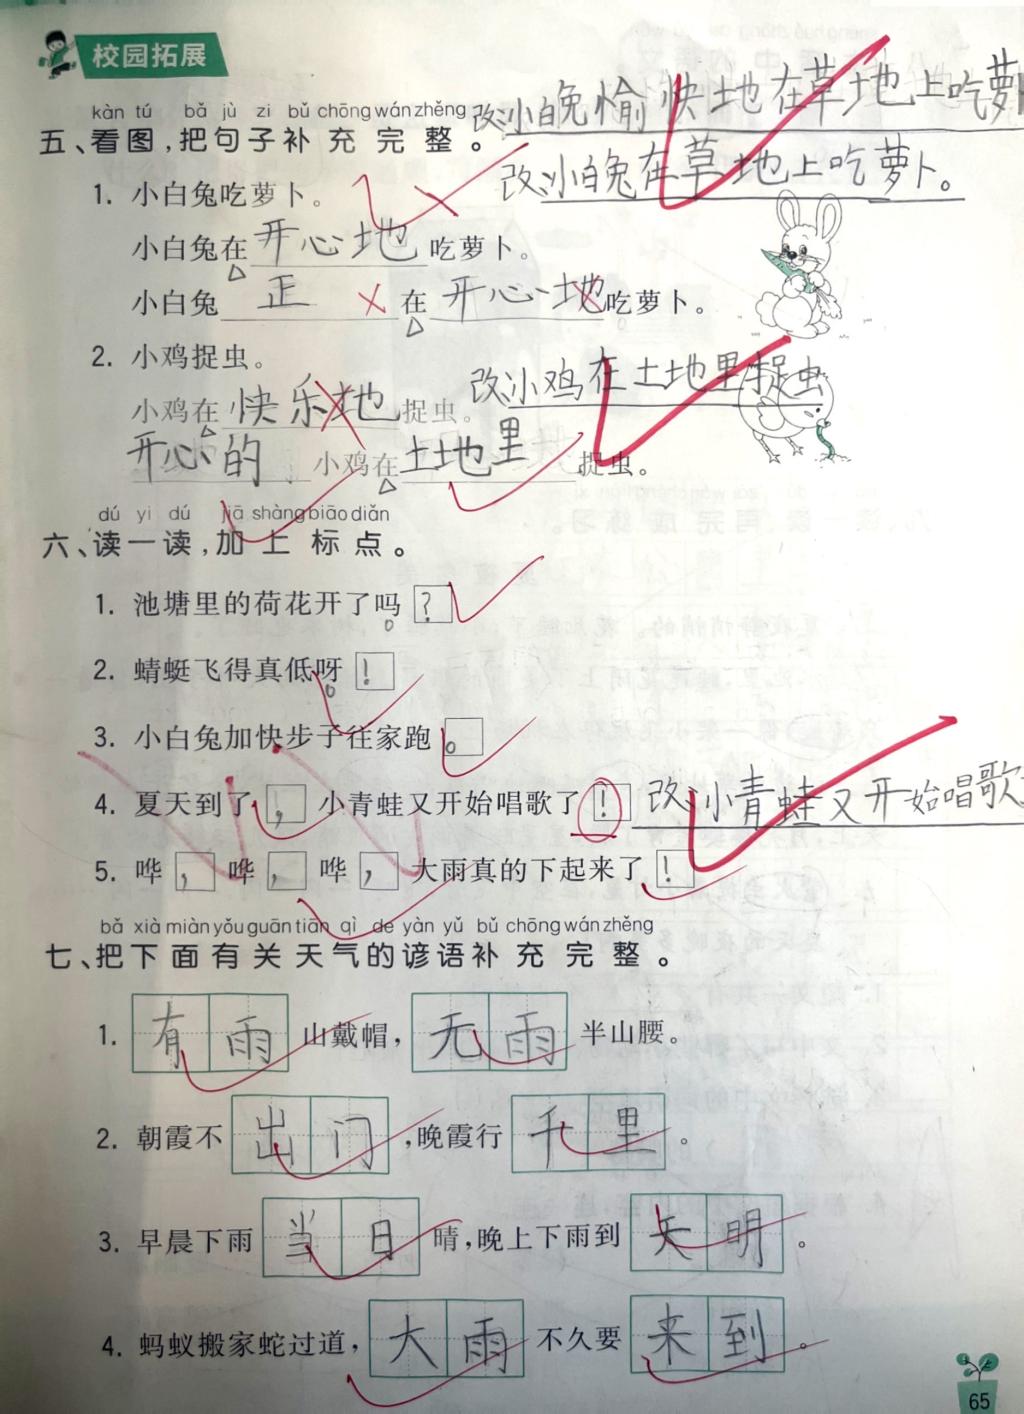 校园拓展
kàn tú bǎ jù zi bǔ chōng wán zhěng
五、看图,把句子补充完整。
改:小白晚愉快地在草地上吃萝卜
改:小白兔在草地上吃萝卜。
1. 小白兔吃萝卜。
小白兔在开心地吃萝卜。
小白兔正在开心地吃萝卜。
2. 小鸡捉虫。
改:小鸡在土地里捉虫
小鸡在快乐地捉虫。
开心的小鸡在土地里捉虫。
dú yi dú jiā shàng biāo diǎn
六、读一读,加上标点。
1. 池塘里的荷花开了吗?
2. 蜻蜓飞得真低呀!
3. 小白兔加快步子往家跑。
4. 夏天到了,小青蛙又开始唱歌了! 改:小青蛙又开始唱歌
5. 哗,哗,哗,大雨真的下起来了!
bǎ xià miàn yǒu guān tiān qì de yàn yǔ bǔ chōng wán zhěng
七、把下面有关天气的谚语补充完整。
1. 有雨山戴帽,无雨半山腰。
2. 朝霞不出门,晚霞行千里。
3. 早晨下雨当日晴,晚上下雨到天明。
4. 蚂蚁搬家蛇过道,大雨不久要来到。
65